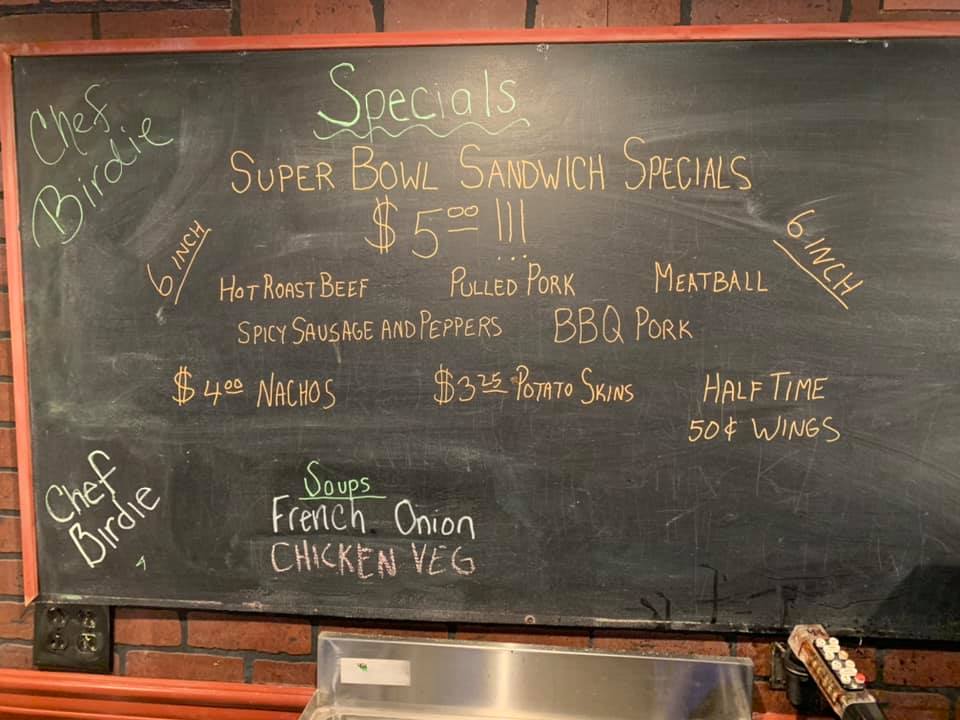 Specials
Chef
Birdie
SUPER BOWL SANDWICH SPECIALS
$5.00 !!!
6 INCH
6 INCH
HOT ROAST BEEF PULLED PORK MEATBALL
SPICY SAUSAGE AND PEPPERS BBQ PORK
$4.00 NACHOS $3.25 POTATO SKINS HALF TIME
50¢ WINGS
Chef
Birdie
Soups
French Onion
CHICKEN VEG